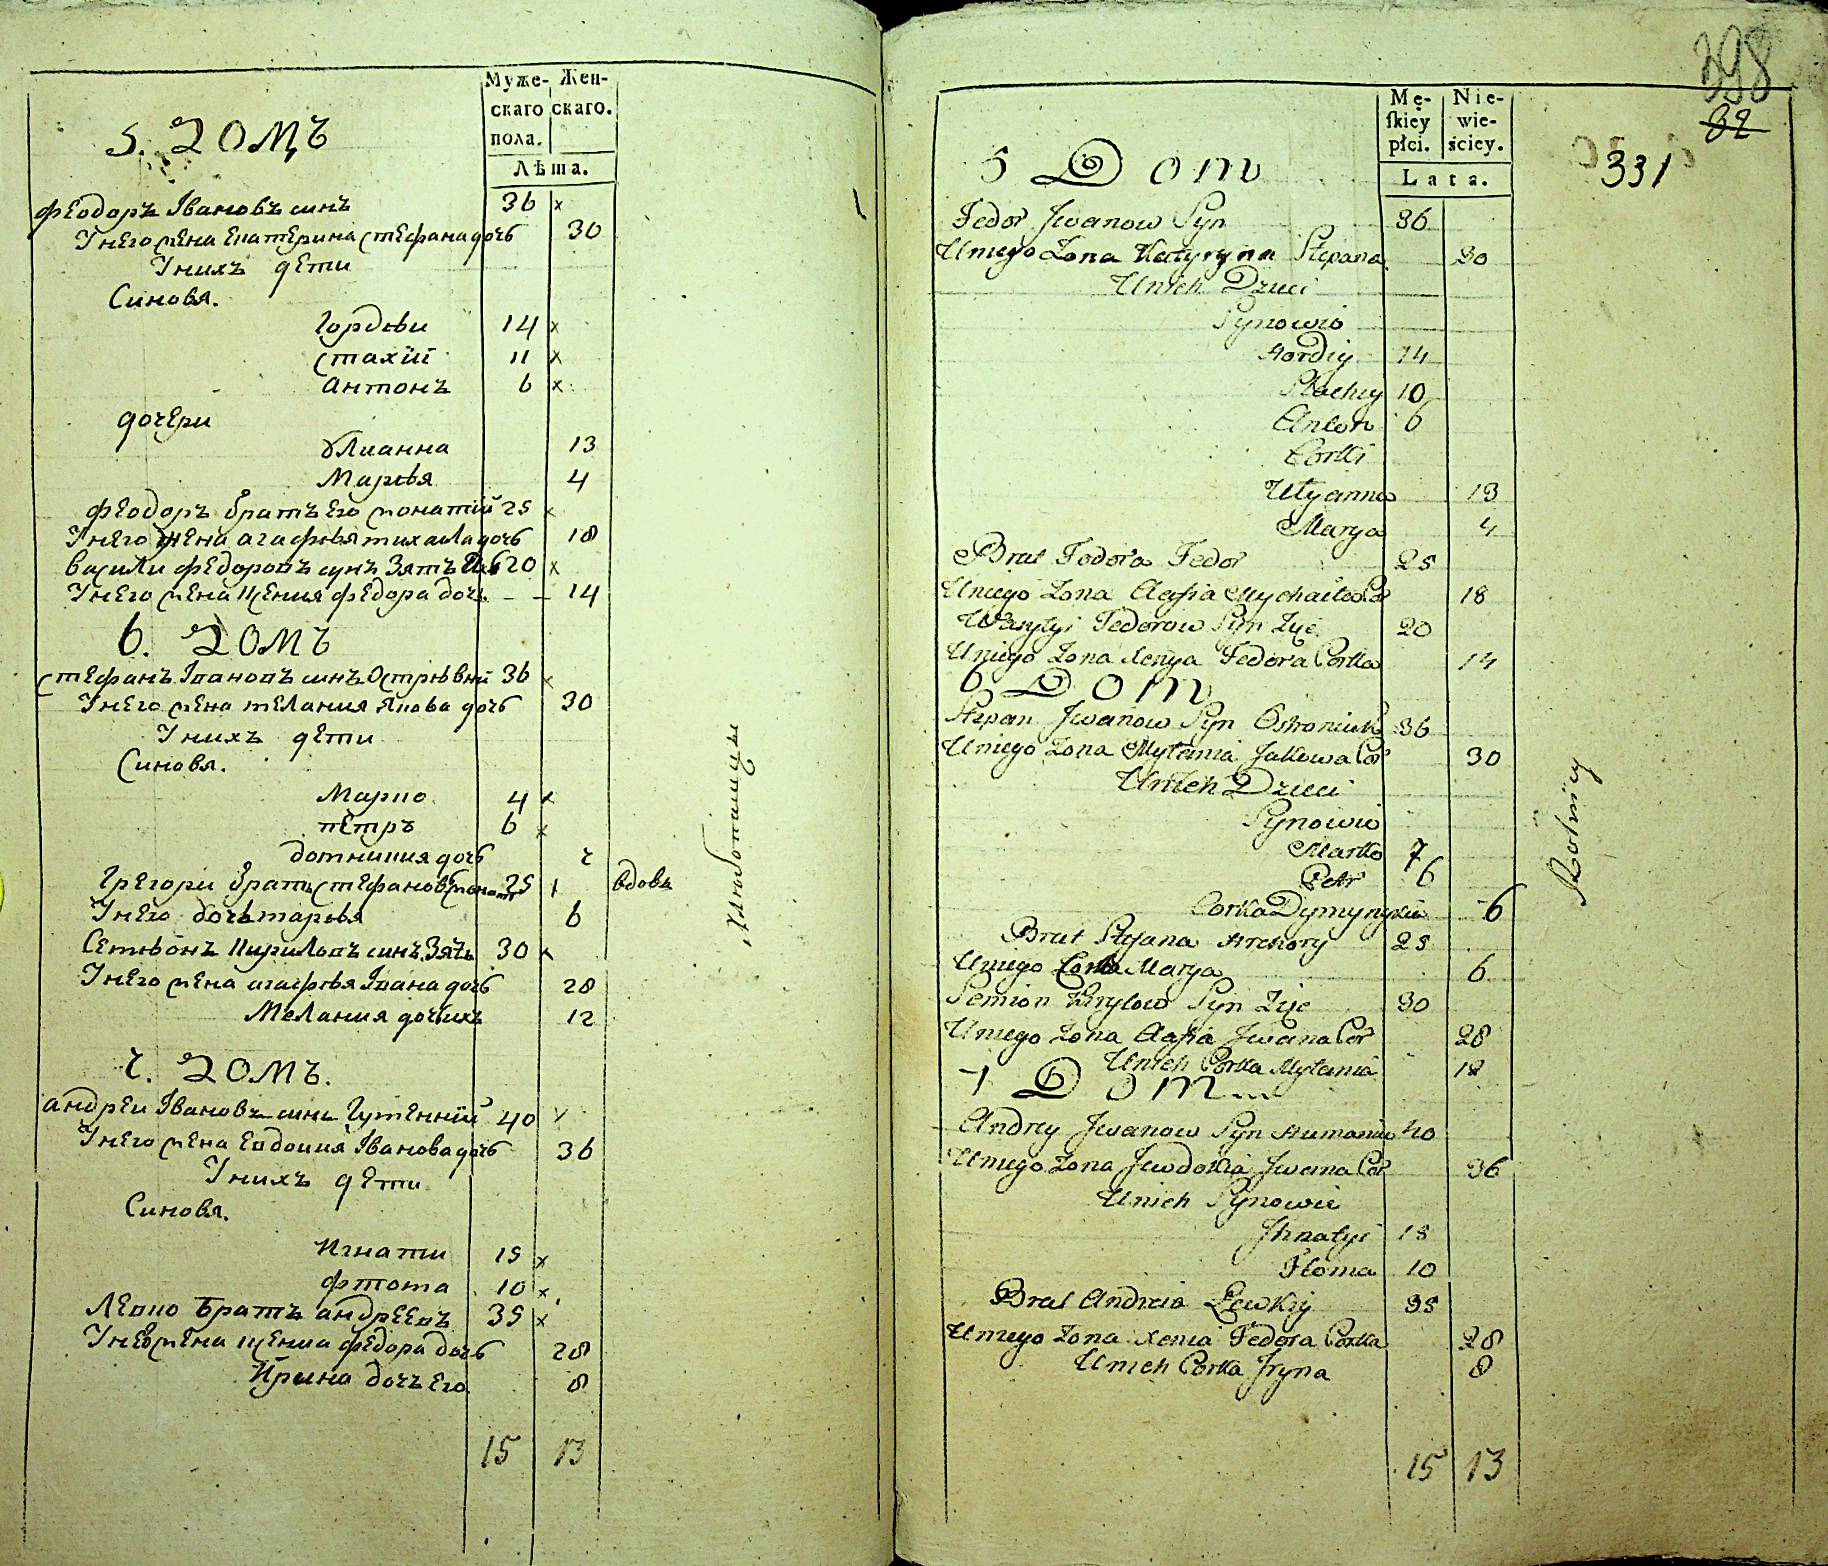 Муже-
скаго
пола.
Жен-
скаго.
Лѣта.
5. ДОМЪ
Феодоръ Івановъ синъ 36 x
У него жена Екатерина Стефана дочь 30
У нихъ дети
Синовя.
Гордѣи 14 x
Стахїй 11 x
Антонъ 6 x
дочери
Улианна 13
Маръя 4
Феодоръ братъ Его женатїй 25 x
У него жена агафъя михаила дочь 18
василѝ Федоровъ сунъ Зять 20 x
У него жена ксения Федора доч. 14
6. ДОМЪ
Стефанъ Івановъ синъ 36 x
У него жена мелания Якова дочь 30
У нихъ дети
Синовя.
Марко 4 x
петръ 6 x
домникия дочь 2
Григори братъ Стефановъ женатъ 25 вдовъ
У него дочь маръя 6
Семѣонъ Кириловъ синъ Зять 30 x
У него жена агафъя Івана дочь 28
Мелания доч ихъ 12
7. ДОМЪ.
андреи Івановъ синъ Гуменнїй 40 x
У него жена Евдокия Іванова дочь 36
У нихъ дети
Синовя.
Игнати 15 x
Фтома 10 x
Левко братъ андреевъ 35 x
У него жена ксения Федора дочь 28
Ирина дочъ Его 8
15 13
Хлиборобници
398
32
331
Mę-
skiey
płci.
Nie-
wie-
ściey.
Lata.
5 Dom
Fedor Jwanow Syn 36
Uniego Zona Katyryna Stepana 30
Unich Dzieci
Synowie
Hordiy 14
Stachiy 10
Anton 6
Corki
Ulyanna 13
Marya 4
Brat Fodora Fedor 25
Uniego Zona Aafia Mychaiła Cor 18
Wasylyi Fedorow Syn Zięc 20
Uniego Zona Xenya Fedora Corka 14
6 Dom
Stepan Jwanow Syn Ostroniuk 36
Uniego Zona Mylania Jakowa Cor 30
Unich Dzieci
Synowie
Marko 7
Petr 6
Corka Dymynykia 6
Brat Stefana Hrehory 25
Uniego Corka Marya 6
Semion Kirylow Syn Zięc 30
Uniego Zona Aafia Jwana Cor 28
Unich Corka Mylania 12
7 Dom
Andrey Jwanow Syn Humaniuk 40
Uniego Zona Jewdokia Jwana Cor 36
Unich Synowie
Jhnatyi 15
Floma 10
Brat Andreia Lewkiy 35
Uniego Zona Xenia Fedora Corka 28
Unich Corka Jryna 8
15 13
Rolnicy